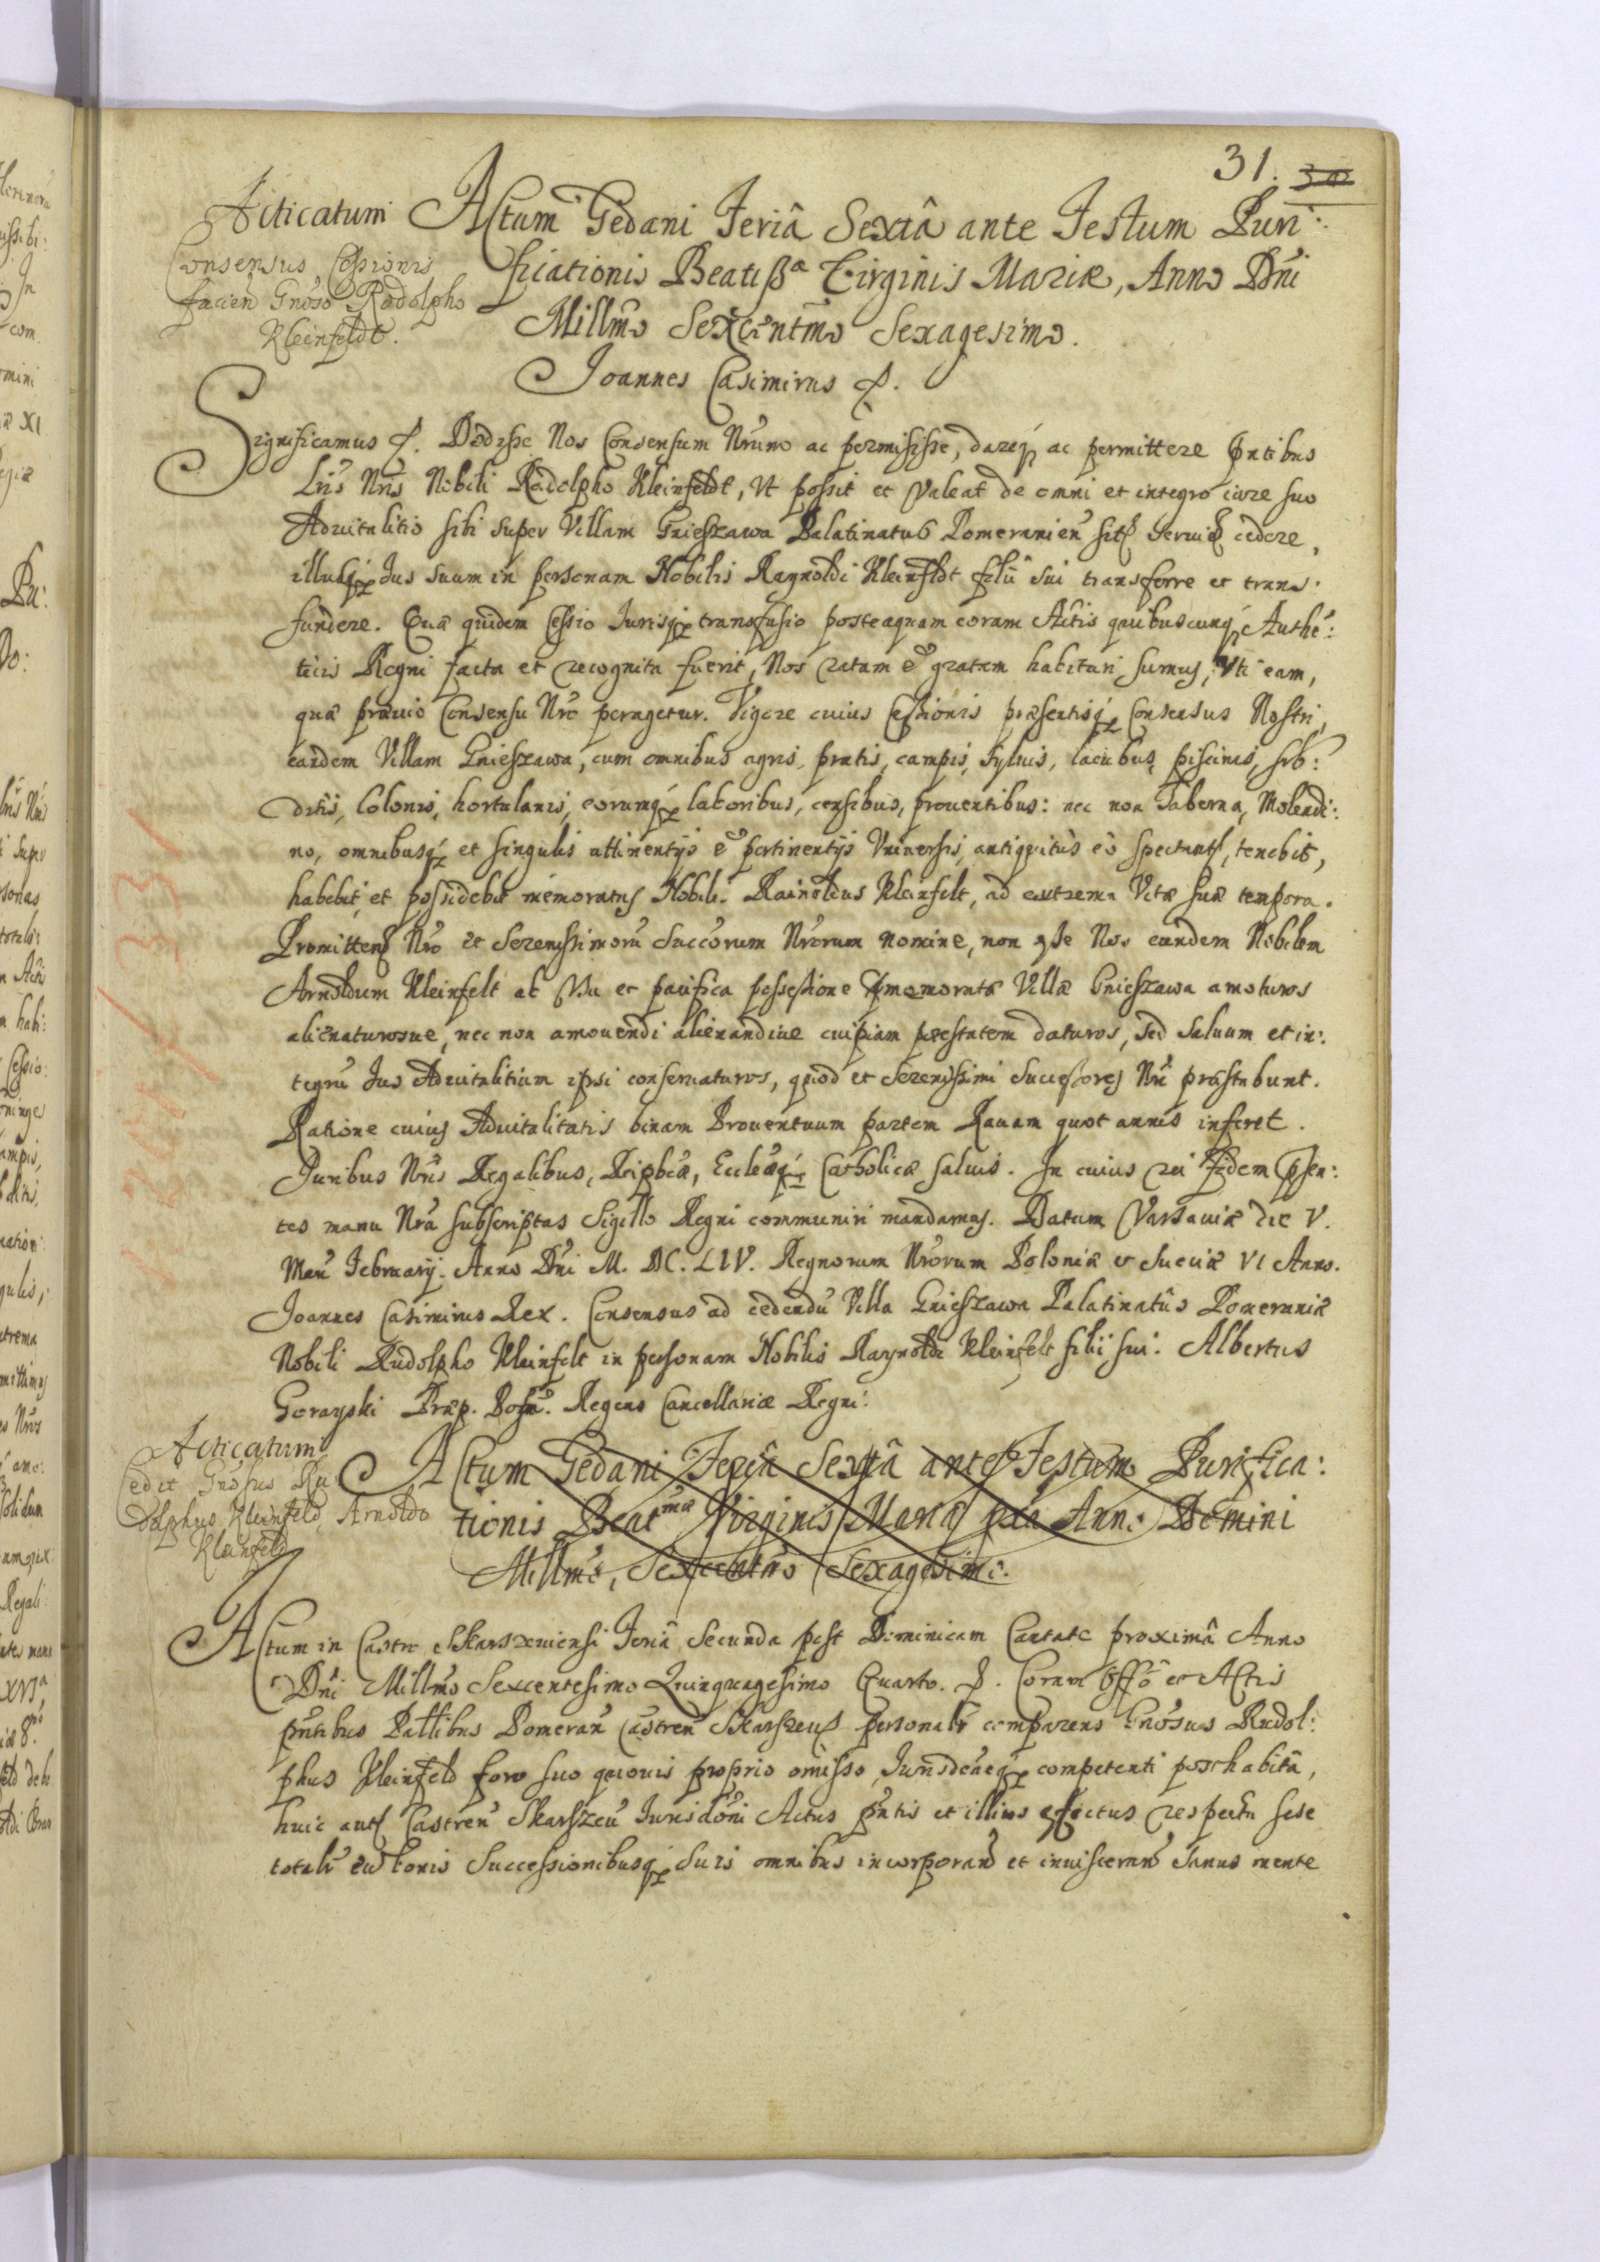 31.
Acticatum
Consensus Cessionis
facien Gnoso Rodolpho
Kleinfeldt.
Actum Gedani Feriâ Sextâ ante Festum Puri:
ficationis Beatissa Virginis Mariæ, Anno Dni
Millmo Sexcentmo Sexagesimo.
Joannes Casimirus &.
Significamus &. Dedisse Nos Consensum Nrum ac permisisse, dareq ac permittere pntibus
Lris Nris Nobili Rodolpho Kleinfeldt, Ut possit et valeat de omni et integro iure suo
Aduitalitio sibi super Villam Gnieszawa Palatinatus Pomeranien cedere,
illudq Jus suum in personam Nobilis Raynoldi Kleinfeldt filii sui transferre et trans:
fundere. Quæ quidem Cessio Jurisq transfusio posteaquam coram Actis quibuscunq Authe:
ticis Regni facta et recognita fuerit, Nos ratam & gratam habituri sumus, Uti eam,
quæ præuio Consensu Nro peragetur. Vigore cuius Cessionis præsentisq Consensus Nostri,
eandem Villam Gnieszawa, cum omnibus agris, pratis, campis, syluis, lacubus, piscinis, sub:
ditis, Colonis, hortulanis, eorumq laboribus, censibus, prouentibus: nec non Taberna, Molendi:
no, omnibusq et singulis attinentijs & pertinentijs Vniuersis, antiquitùs eò spectant, tenebit,
habebit, et possidebit memoratus Nobil. Rainoldus Kleinfelt, ad extrema Vitæ suæ tempora.
Promittens Nro et Serenissimoru Succorum Nrorum nomine, non esse Nos eundem Nobilem
Arnoldum Kleinfelt ab Vsu et pacifica possessione memoratæ Villæ Gnieszawa amoturos
alienaturosue, nec non amouendi alienandiue cuipiam potestatem daturos, sed saluum et in:
tegru Jus Aduitalitium ipsi conseruaturos, quod et Serenissimi Successores Nri præstabunt.
Ratione cuius Aduitalitatis binam Prouentuum partem Rauam quot annis inferet.
Juribus Nris Regalibus, Reipbcæ, Eccleæq Catholicæ saluis. In cuius rei fidem præsen:
tes manu Nra subscriptas Sigillo Regni communiri mandamus. Datum Varsauiæ die V.
Men Februarij. Anno Dni M. DC. LIV. Regnorum Nrorum Poloniæ & Sueciæ VI Anno.
Joannes Casimirus Rex. Consensus ad cedendu Villa Gnieszawa Palatinatus Pomeraniæ
Nobili Rudolpho Kleinfelt in personam Nobilis Raynoldi Kleinfelt filij sui. Albertus
Gorayski Præp. Posn. Regens Cancellariæ Regni.
Acticatum
Cedit Gnosus Ru
dolphus Kleinfeld Arnoldo
Kleinfeld
Actum Gedani Feriâ Sextâ ante Festum Purifica:
tionis Beatmæ Virginis Mariæ Anno Domini
Millmo, Sexcentmo Sexagesimo.
Actum in Castro Skarszeuiensi Feriâ Secunda post Dominicam Cantate proximâ Anno
Dni Millmo Sexcentesimo Quinquagesimo Quarto. &. Coram Offo et Actis
pntibus Pallibus Pomeran Castren Skarszeu personalr comparens Gnosus Rudol:
phus Kleinfeld foro suo quouis proprio omisso, Jurisdcneq competenti posthabitâ,
huic aut Castren Skarszeu Jurisdoni Actus pntis et illius effectus respectu sese
totalr cu bonis Successionibusq suis omnibus incorporand et inuiscerand Sanus mente